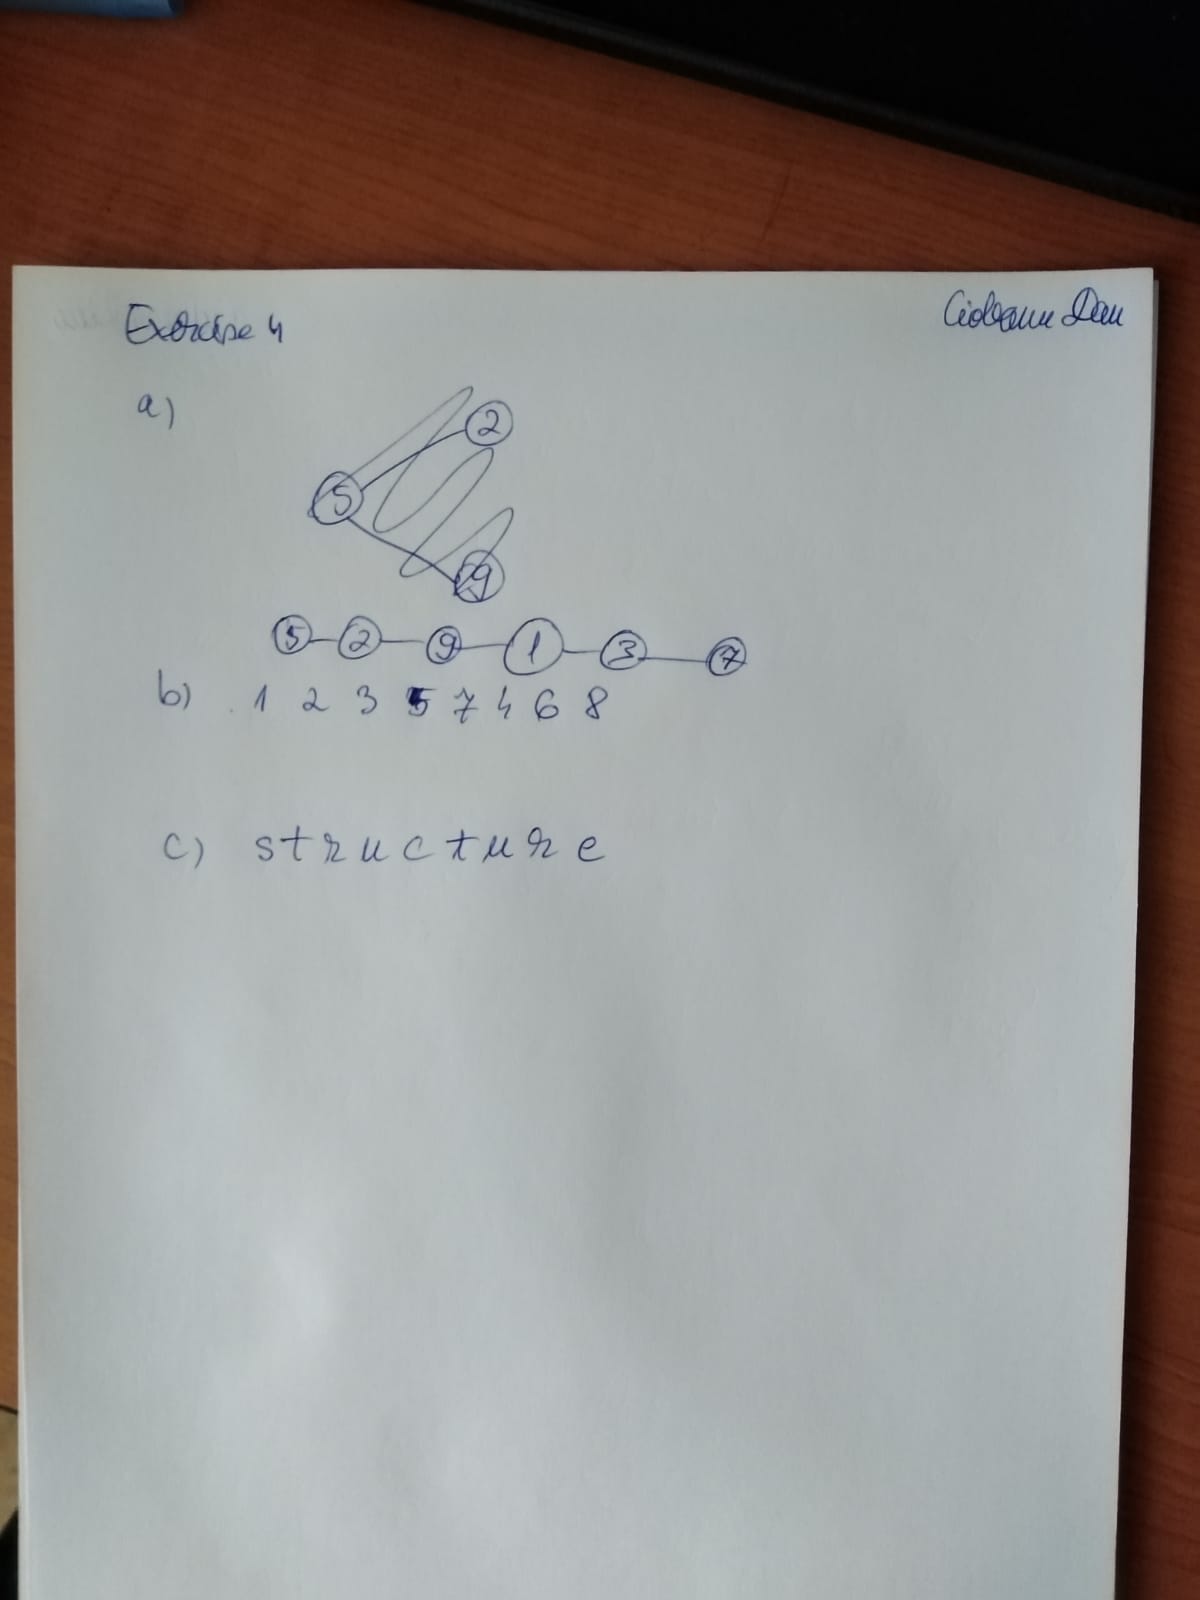 Exercise 4
Ciobanu Dan
a)
2
5
9
5 2 9 1 3 7
b) 1 2 3 5 7 4 6 8
c) structure